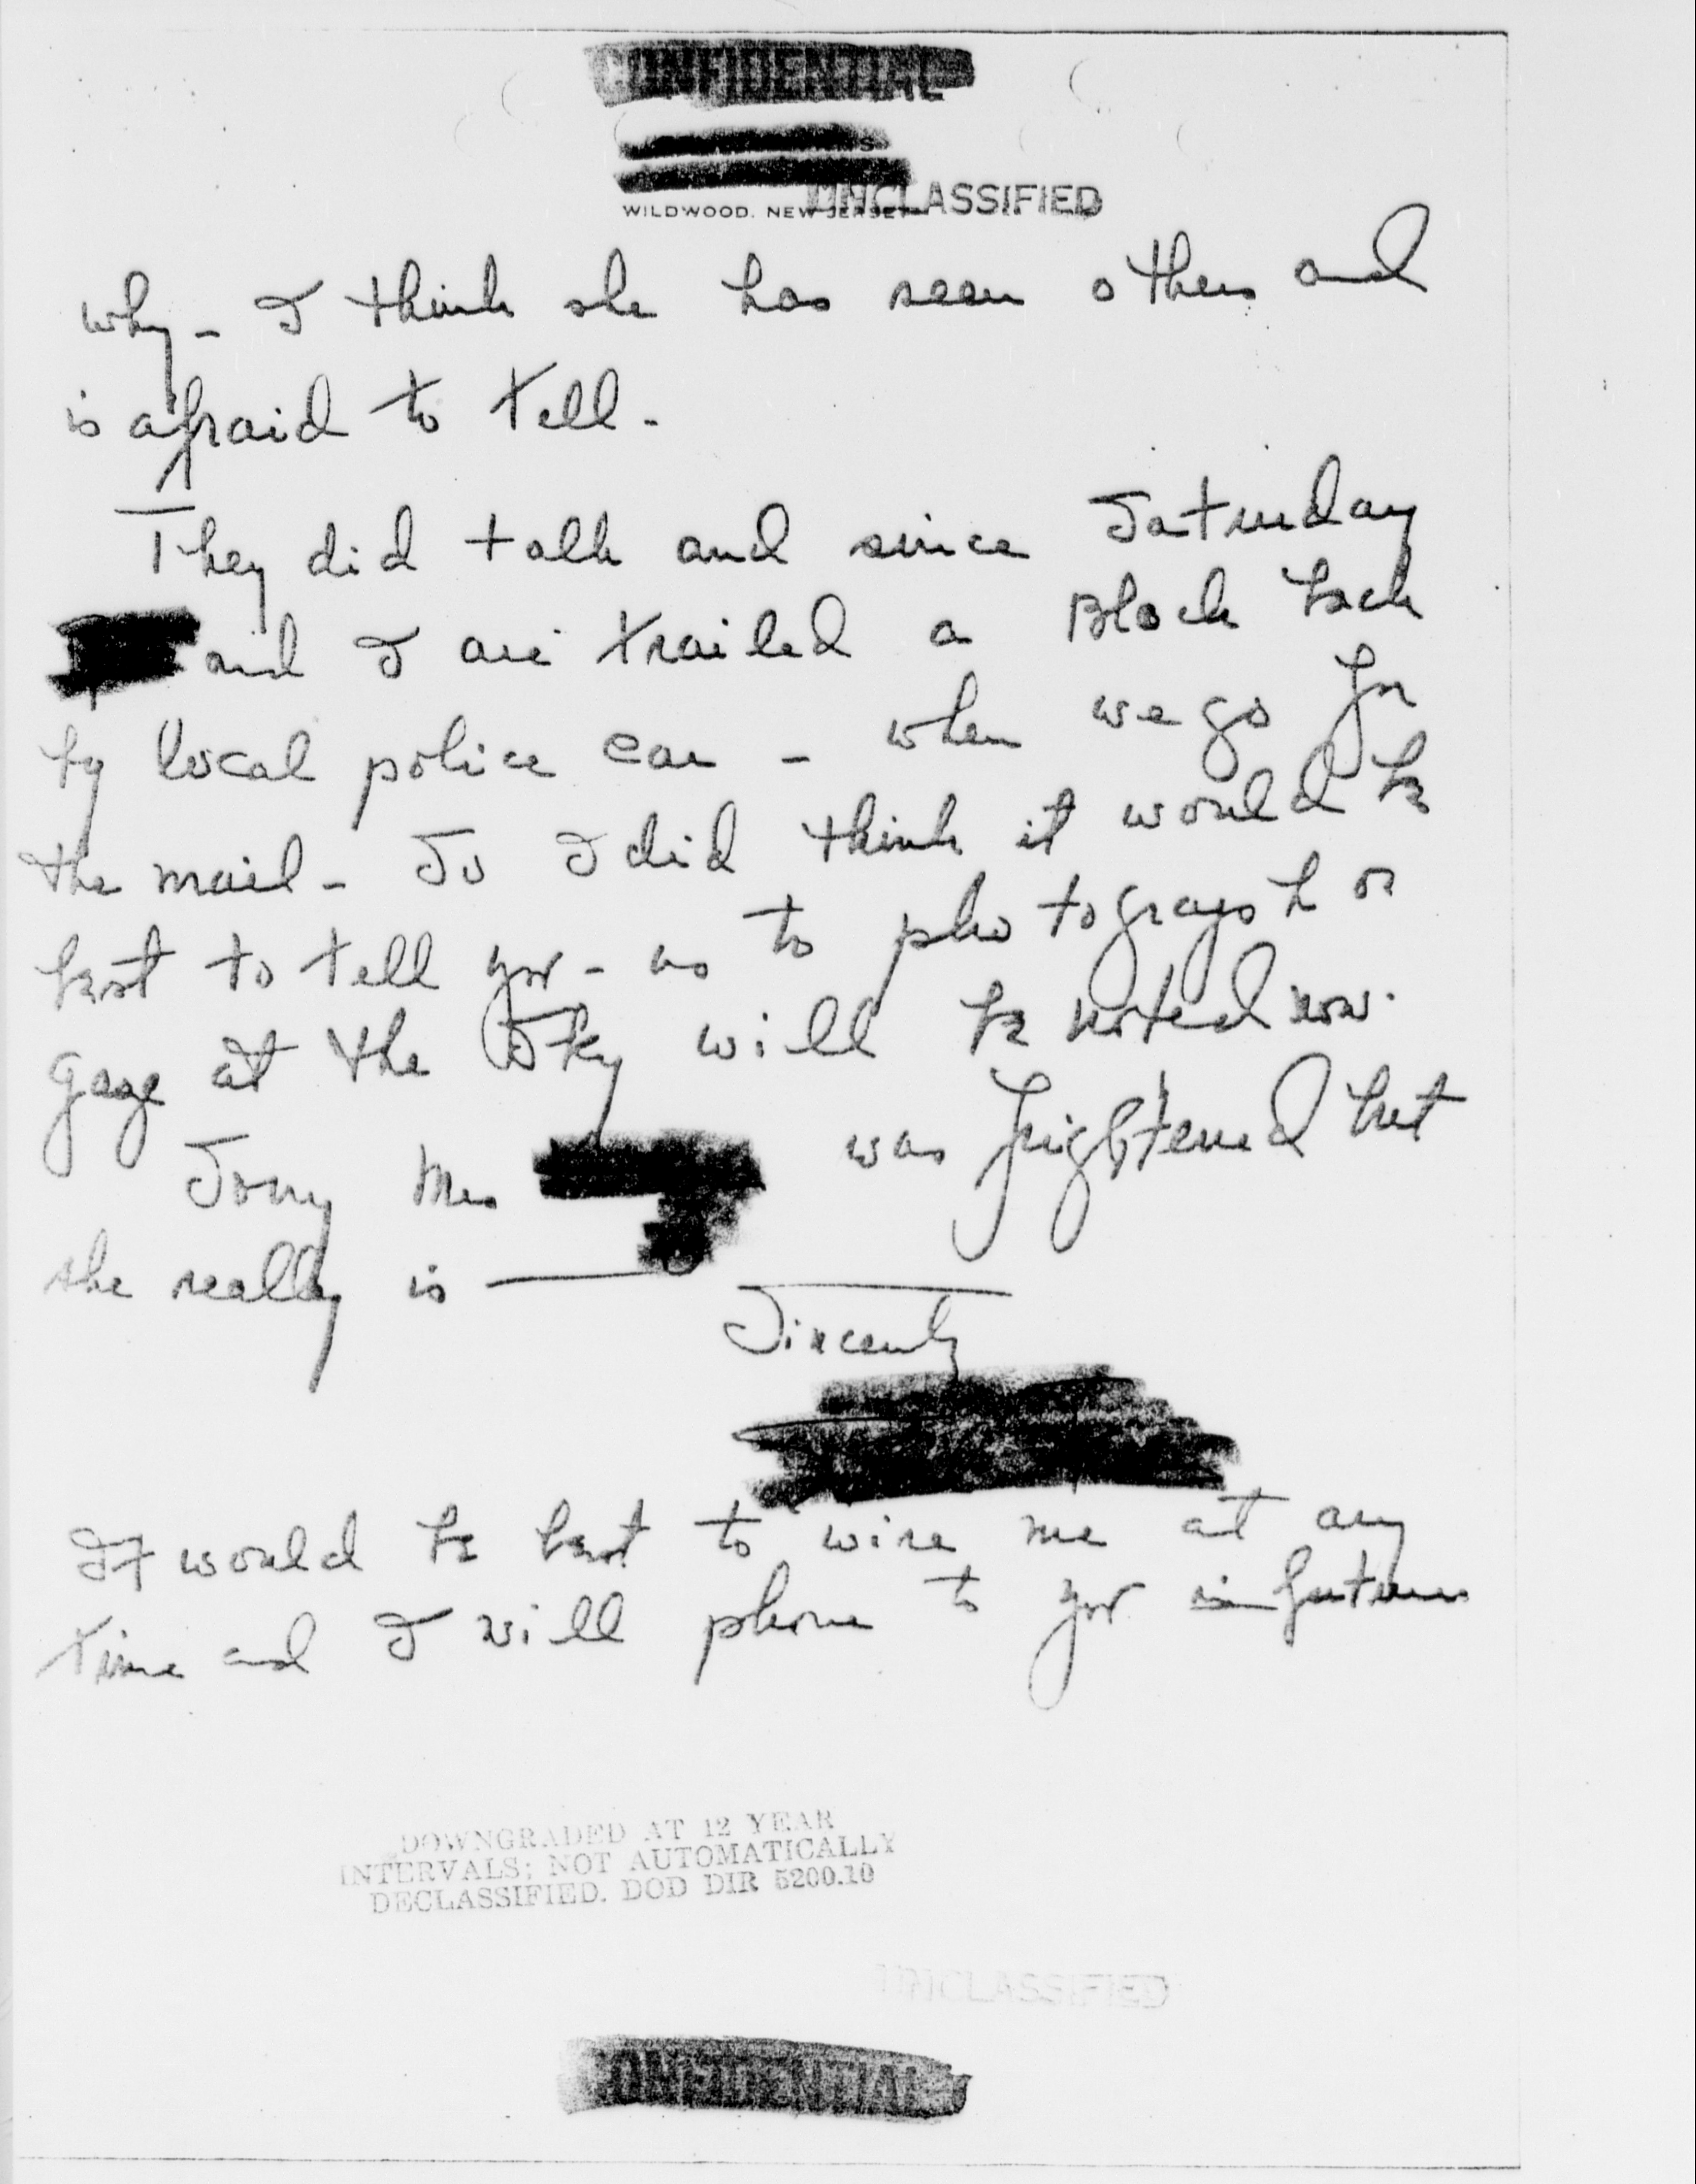 CONFIDENTIAL
WILDWOOD, NEW JERSEY
UNCLASSIFIED
why - I think she has seen others and
is afraid to tell -
They did talk and since Saturday
and I are trailed a Block back
by local police car - when we go for
the mail - So I did think it would be
best to tell you - as to photograph or
gaze at the Sky will be noted now.
Sorry Mrs was frightened but
she really is
Sincerely
It would be best to wire me at any
time and I will phone to you in future
DOWNGRADED AT 12 YEAR
INTERVALS; NOT AUTOMATICALLY
DECLASSIFIED. DOD DIR 5200.10
UNCLASSIFIED
CONFIDENTIAL